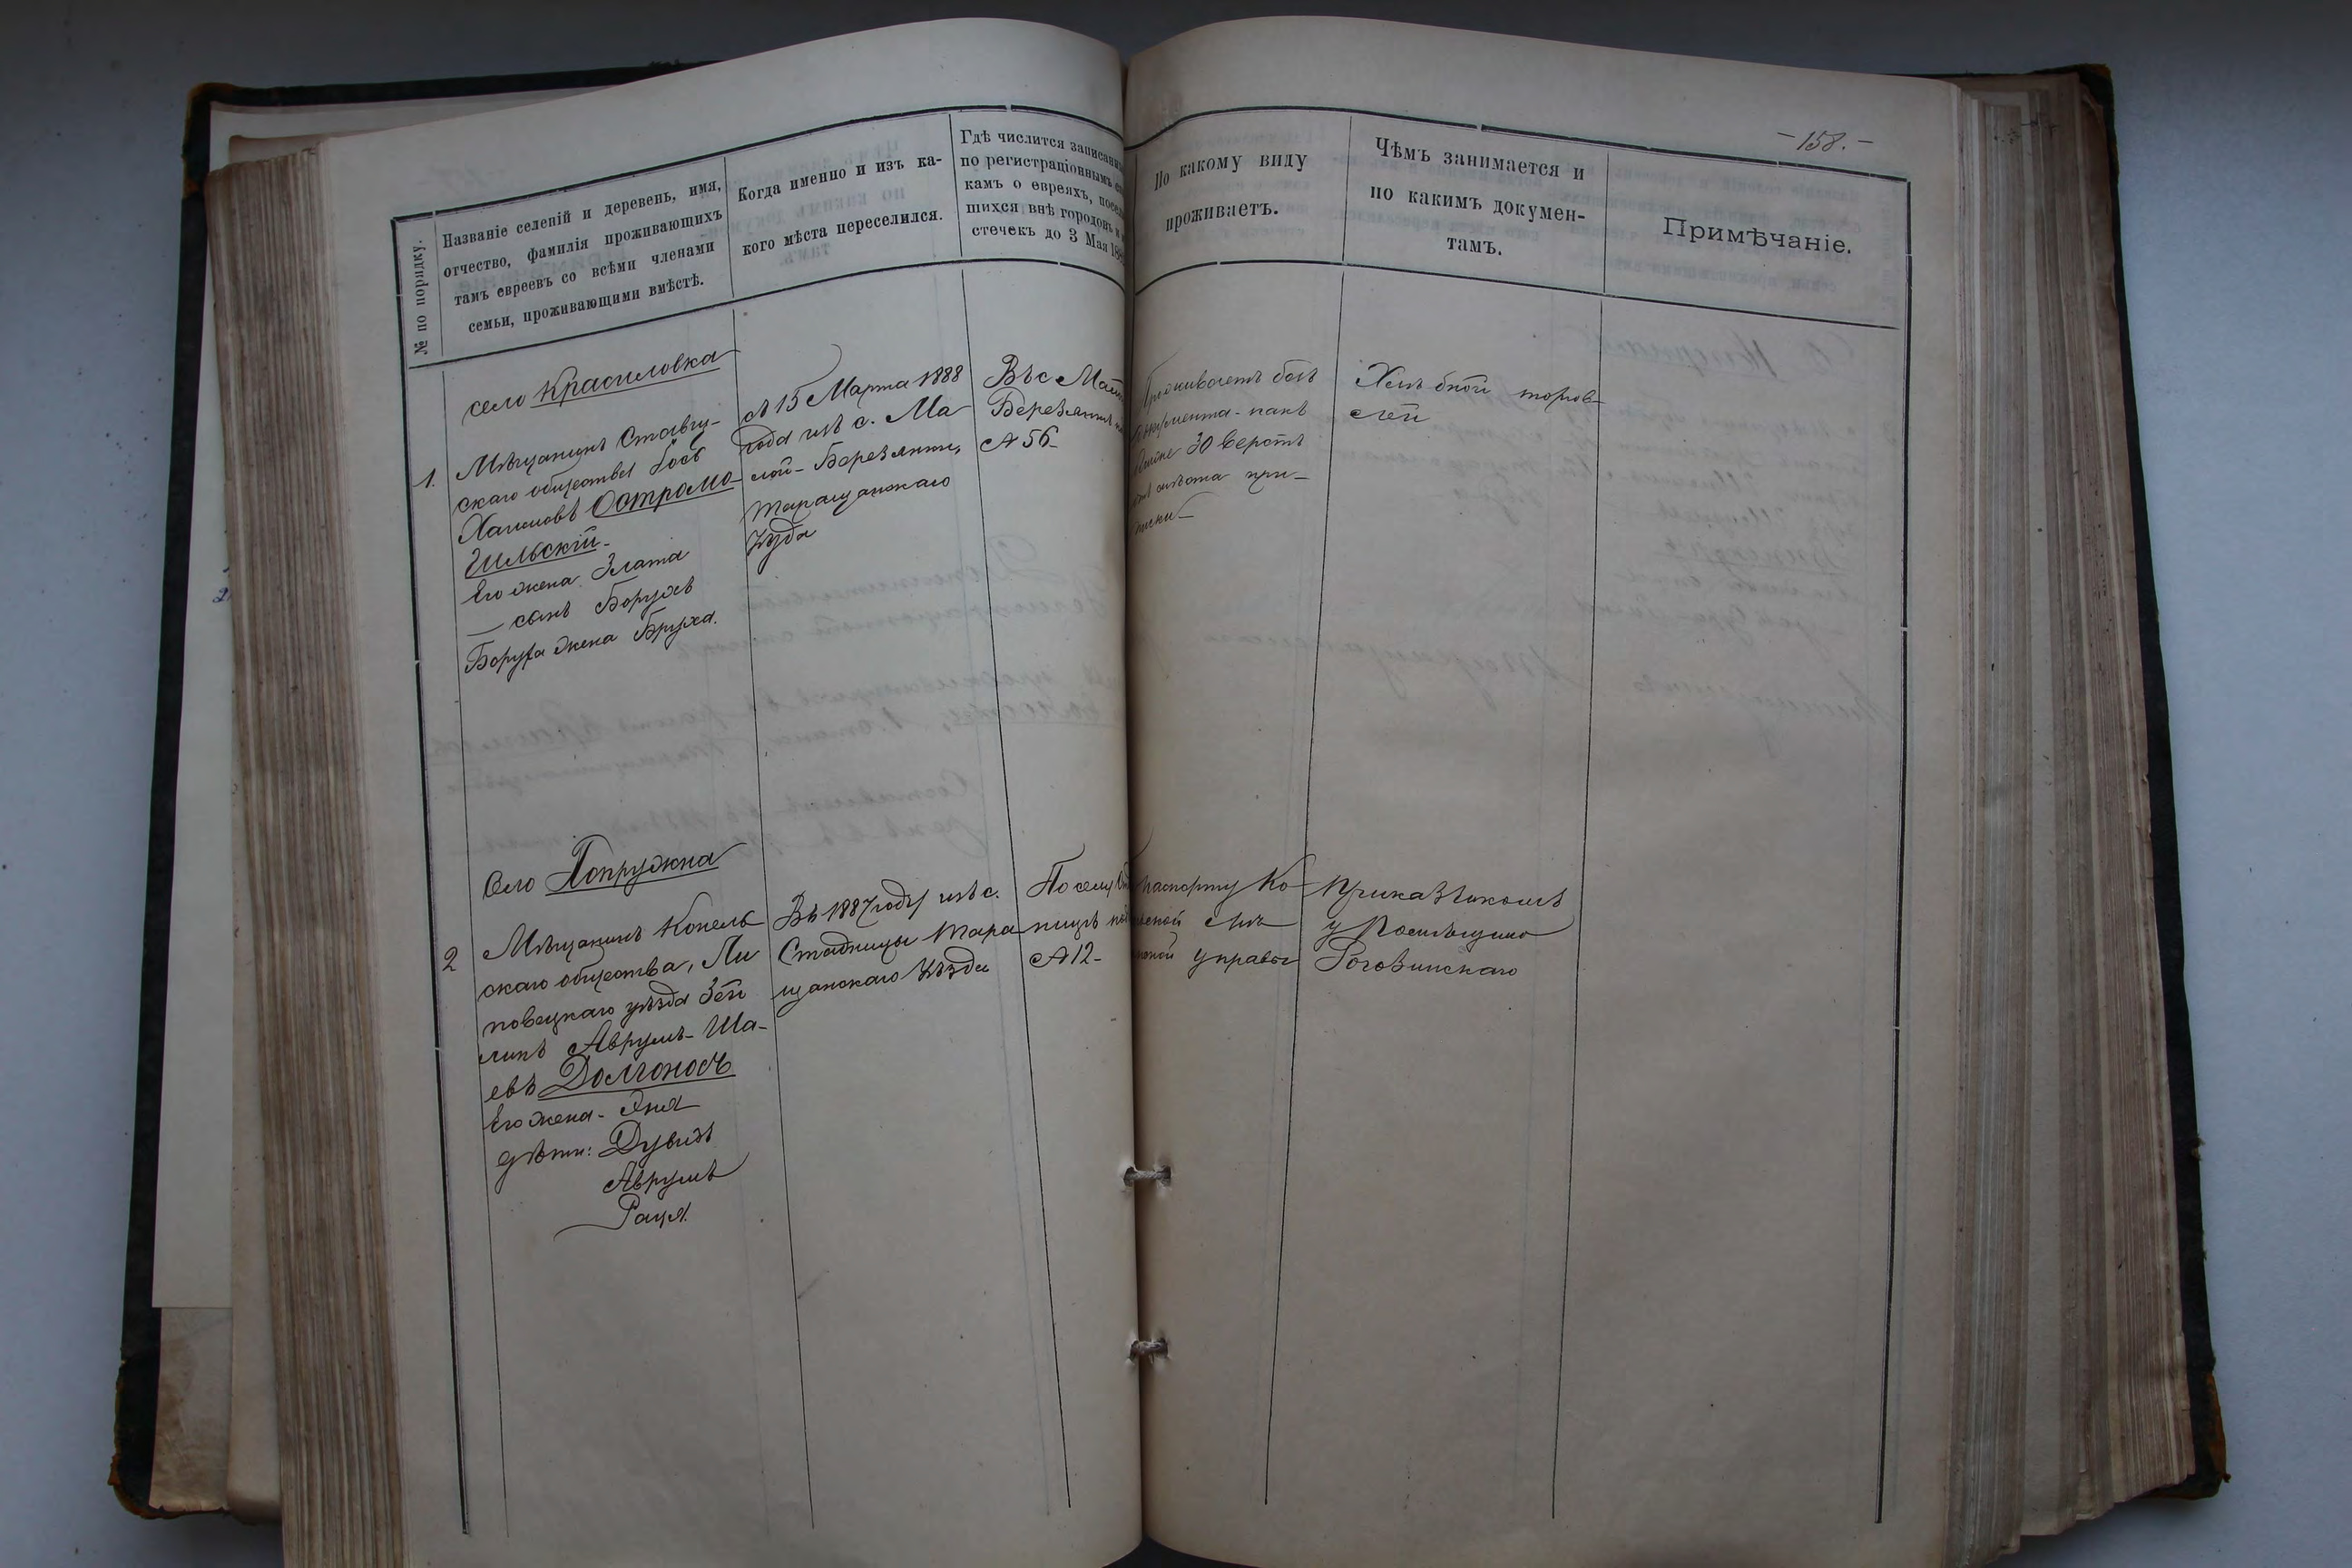 -158.-
№ по порядку.
Названіе селеній и деревень, имя,
отчество, фамилія проживающихъ
тамъ евреевъ со всѣми членами
семьи, проживающими вмѣстѣ.
Когда именно и изъ ка-
кого мѣста переселился.
Гдѣ числится записанн
по регистраціоннымъ
камъ о евреяхъ, посел
шихся внѣ городовъ и
стечекъ до 3 Мая 188
По какому виду
проживаетъ.
Чѣмъ занимается и
по какимъ докумен-
тамъ.
Примѣчаніе.
село Красиловка
1. Мѣщанинъ Ставищ-
скаго общества Іосъ
Хаимовъ Острамо-
гильскій-
Его жена Злата
— сынъ Борухъ
Боруха жена Бруха.
съ 15 Марта 1888
года изъ с. Ма
лой-Березянки,
Таращанскаго
Уѣзда
Въ с Мал
Березянкѣ
№ 56-
Проживаетъ безъ
документа-какъ
ближе 30 верстъ
отъ мѣста при-
писки-
Хлѣбной торгов-
лей
Село Попружна
2 Мѣщанинъ Конель
скаго общества, Ли
повецкаго уѣзда Зей
ликъ Аврумъ-Ша-
евъ Долгоносъ
Его жена- Эня
дѣти: Дувидъ
Аврумъ
Рація.
Въ 1887 году изъ с.
Стадницы Тара
щанскаго Уѣзда
По селу
ницѣ
№ 12-
паспорту Ко-
управы
Приказчикомъ
у Помѣщика
Роговинскаго